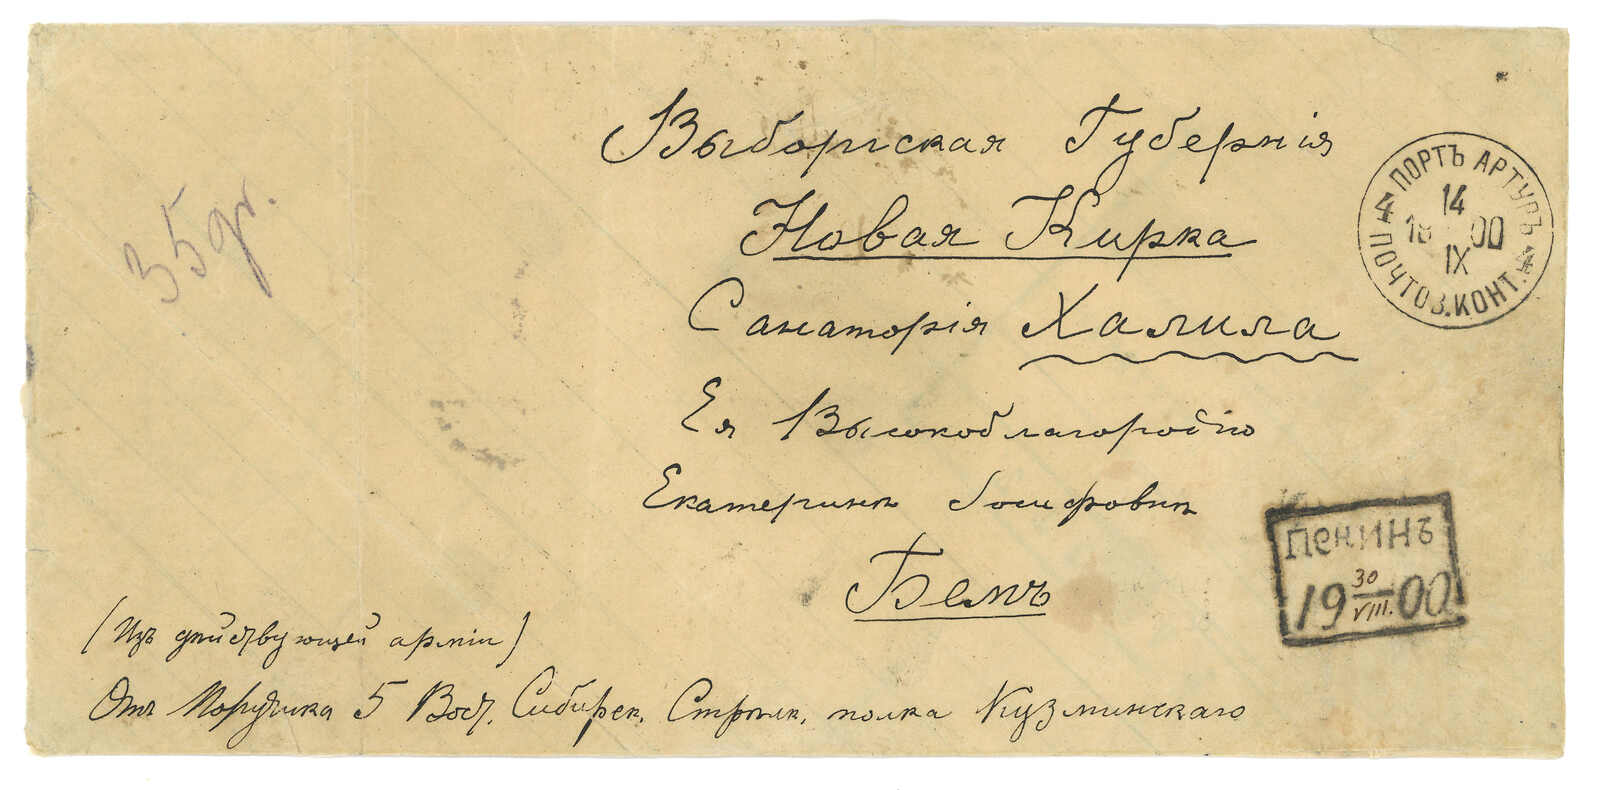 Выборгская Губернія
Новая Кирка
Санаторія Халила
Ея Высокоблагородію
Екатеринѣ Іосифовнѣ
Бемъ
(Изъ дѣйствующей арміи)
Отъ Поручика 5 Вост. Сибирск. Стрѣлк. полка Кузминскаго
35 gr.
ПОРТЪ АРТУРЪ
14
18 00
IX
ПОЧТОВ. КОНТ.
ПЕКИНЪ
19 30/VIII. 00